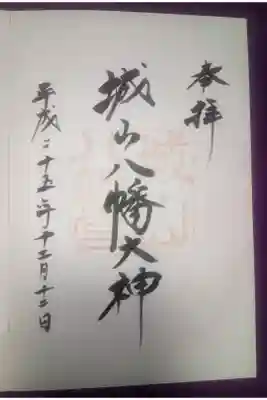 奉拝
城山八幡大神
平成二十五年十二月十二日